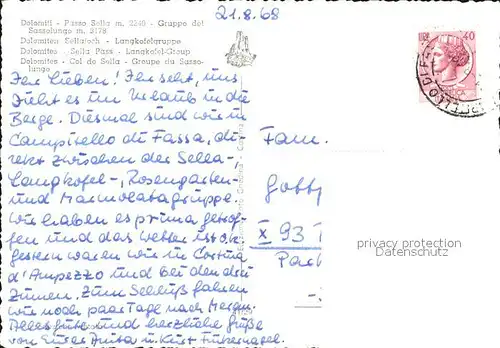 21.8.68
Dolomiti - Passo Sella m. 2240 - Gruppo del
Sassolungo m. 3178
Dolomiten Sellajoch - Langkofelgruppe
Dolomites - Sella Pass - Langkofel-Group
Dolomites - Col de Sella - Groupe du Sasso-
lungo
Ihr Lieben! Ihr seht, uns
zieht es im Urlaub in die
Berge. Diesmal sind wir in
Campitello di Fassa, di-
rekt zwischen der Sella-,
Langkofel-, Rosengarten-
und Marmolatagruppe.
Wir haben es prima getrof-
fen und das Wetter ist
gestern waren wir in Cortina
d'Ampezzo und bei den drei
Zinnen. Zum Schluß fahren
wir noch paar Tage nach Meran.
Alles Gute und herzliche Grüße
von Eurer Anita u. Kurt
Fam.
X 93
40
privacy protection
Datenschutz